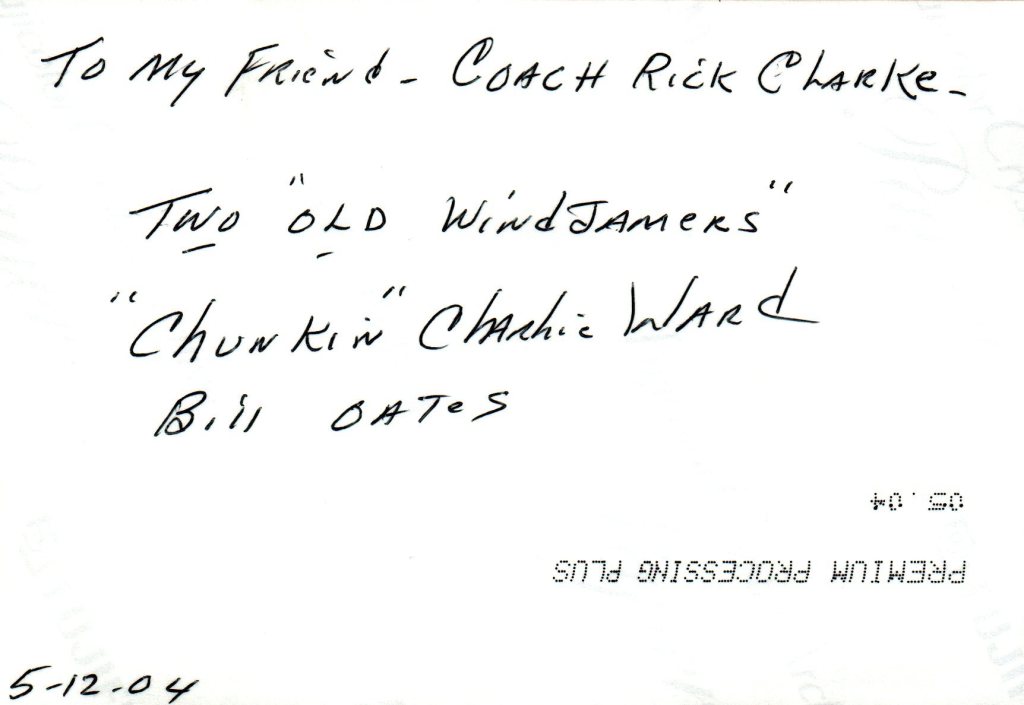 To My Friend - Coach Rick Clarke -
Two "OLD WindJAMERS"
"Chunkin" Charlie Ward
Bill OATES
05.04
PREMIUM PROCESSING PLUS
5-12-04